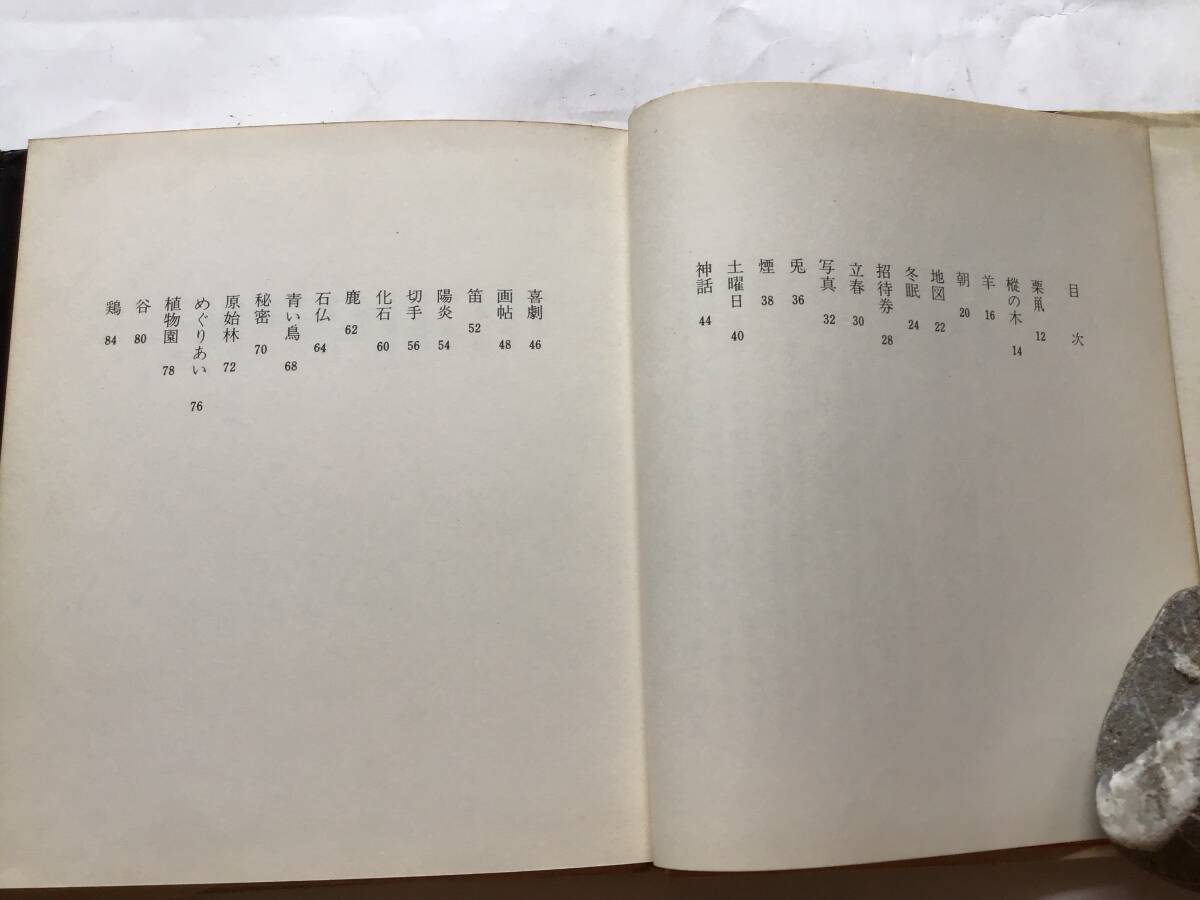 目次
栗鼠 12
樅の木 14
羊 16
朝 20
地図 22
冬眠 24
招待券 28
立春 30
写真 32
兎 36
煙 38
土曜日 40
神話 44
喜劇 46
画帖 48
笛 52
陽炎 54
切手 56
化石 60
鹿 62
石仏 64
青い鳥 68
秘密 70
原始林 72
めぐりあい 76
植物園 78
谷 80
鶏 84